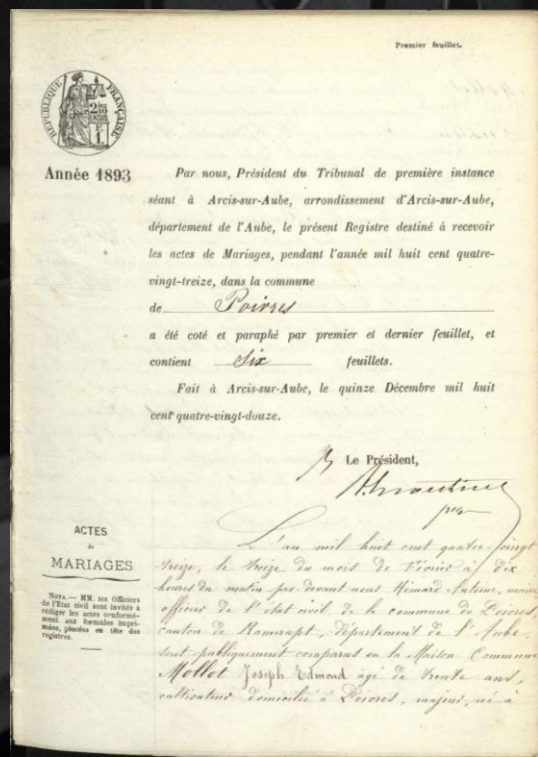 Premier feuillet.
RÉPUBLIQUE FRANÇAISE
Année 1893
Par nous, Président du Tribunal de première instance
séant à Arcis-sur-Aube, arrondissement d'Arcis-sur-Aube,
département de l'Aube, le présent Registre destiné à recevoir
les actes de Mariages, pendant l'année mil huit cent quatre-
vingt-treize, dans la commune
de Poivres
a été coté et paraphé par premier et dernier feuillet, et
contient Six feuillets.
Fait à Arcis-sur-Aube, le quinze Décembre mil huit
cent quatre-vingt-douze.
Le Président,
ACTES
de
MARIAGES
NOTA. — MM. les Officiers
de l'Etat civil sont invités à
rédiger les actes conformé-
ment aux formules impri-
mées, placées en tête des
registres.
L'an mil huit cent quatre-vingt
treize, le treize du mois de Février à dix
heures du matin par devant nous Hémard Antoine, maire
officier de l'état civil de la commune de Poivres,
canton de Ramerupt, département de l'Aube,
sont publiquement comparus en la Maison Commune
Mollot Joseph Edmond agé de trente ans,
cultivateur domicilié à Poivres, majeur, né à